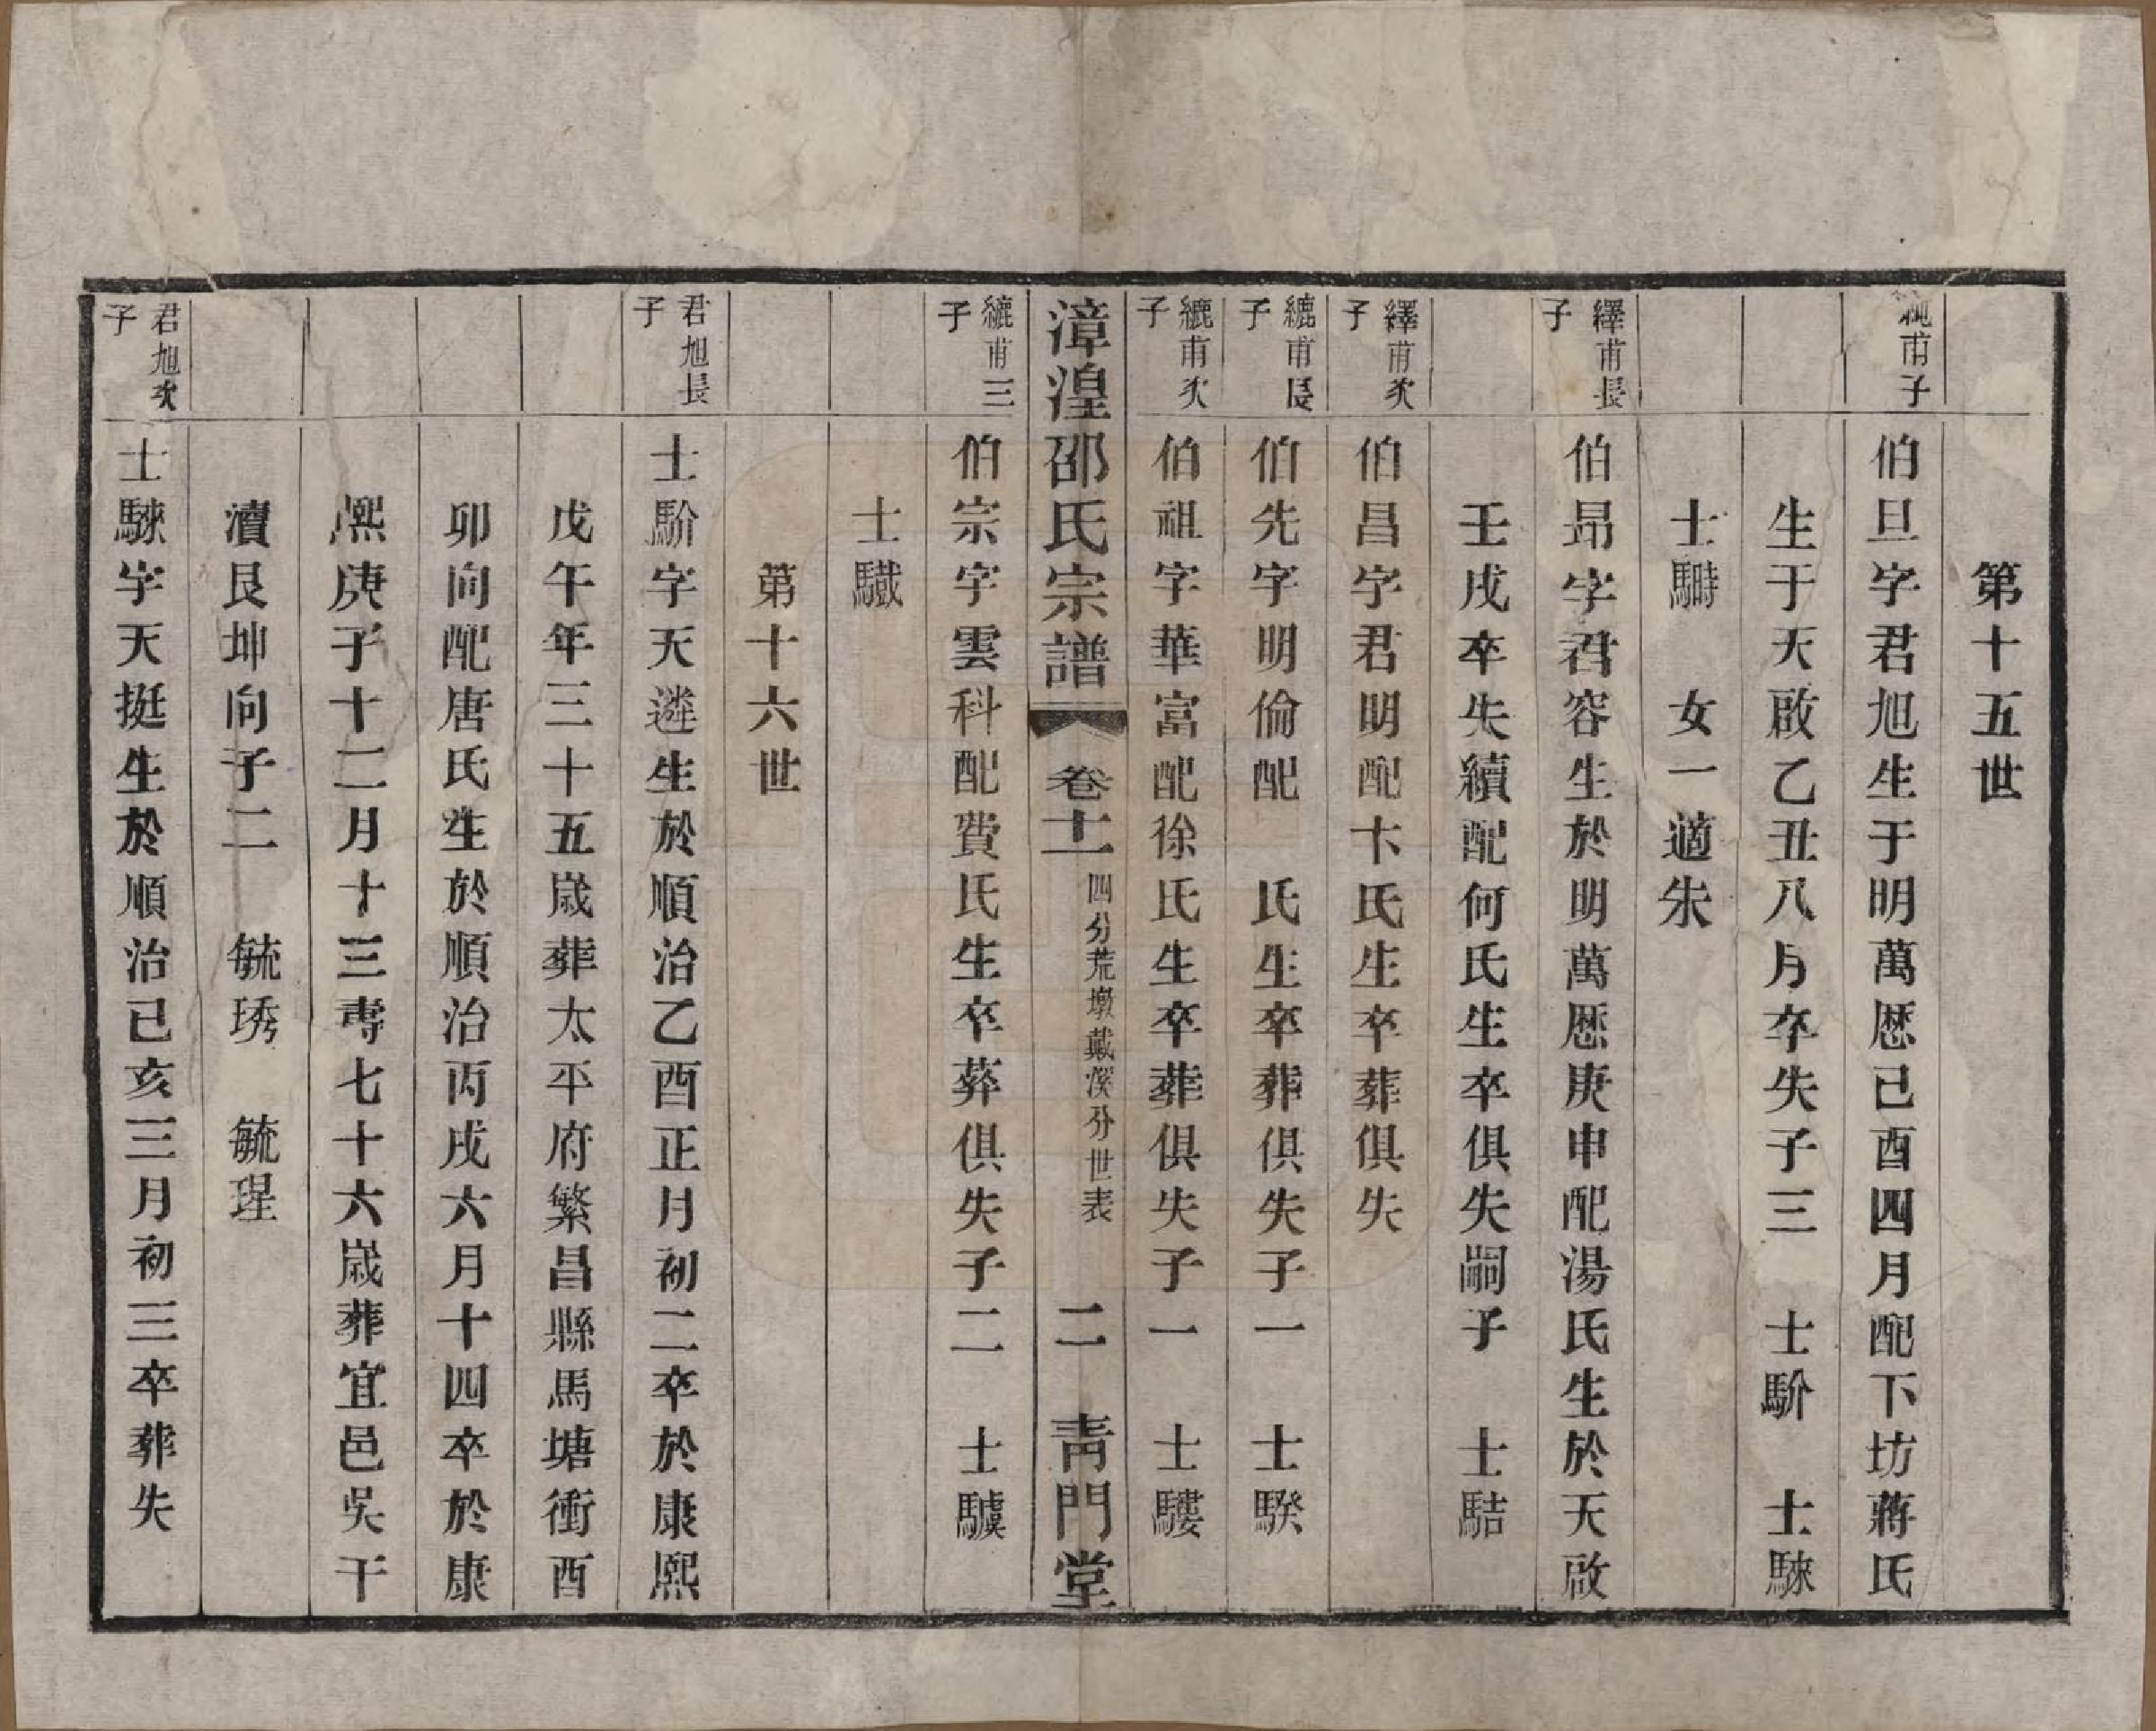 第十五世
甫子
伯旦字君旭生于明萬厯己酉四月配下坊蔣氏
生于天啟乙丑八月卒失子三　士馸　士騋
士騈　女一適朱
繹甫長子
伯昻字君容生於明萬厯庚申配湯氏生於天啟
壬戌卒失續配何氏生卒俱失嗣子　士䮔
繹甫次子
伯昌字君明配卞氏生卒葬俱失
纏甫長子
伯先字明倫配　氏生卒葬俱失子一　士騤
纏甫次子
伯祖字華富配徐氏生卒葬俱失子一　士䮫
漳湟邵氏宗譜　卷十一　四分荒墩戴溪分世表　二　靑門堂
纏甫三子
伯宗字雲科配費氏生卒葬俱失子二　士驉
士
第十六世
君旭長子
士馸字天遴生於順治乙酉正月初二卒於康熙
戊午年三十五歲葬太平府繁昌縣馬塘衝酉
卯向配唐氏生於順治丙戌六月十四卒於康
熙庚子十二月十三壽七十六歲葬宜邑吳干
瀆艮坤向子二　毓琇　毓瑆
君旭次子
士騋字天挺生於順治己亥三月初三卒葬失